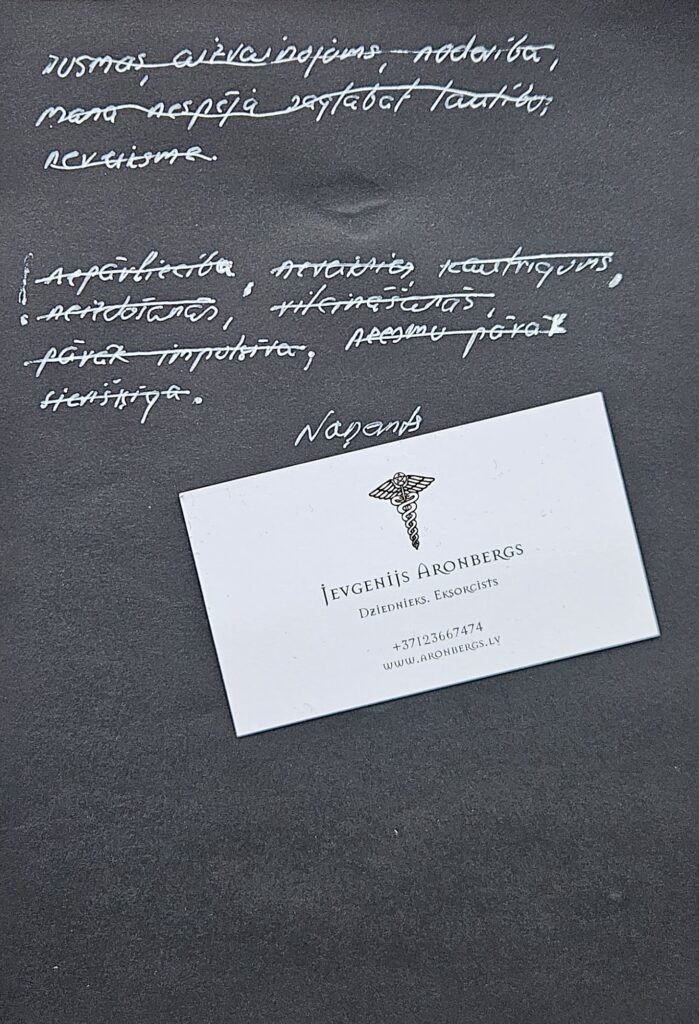 Dusmas, aizvainojums, nodevība,
mana nespēja saglabāt laulību,
neveiksme.
nepārliecība, neveiklies kautrīgums,
neizdošanās, vilcināšanās,
pārāk impulsīva, neesmu pārāk
sievišķīga.
JEVGENIJS ARONBERGS
DZIEDNIEKS. EKSORCISTS
+37123667474
WWW.ARONBERGS.LV